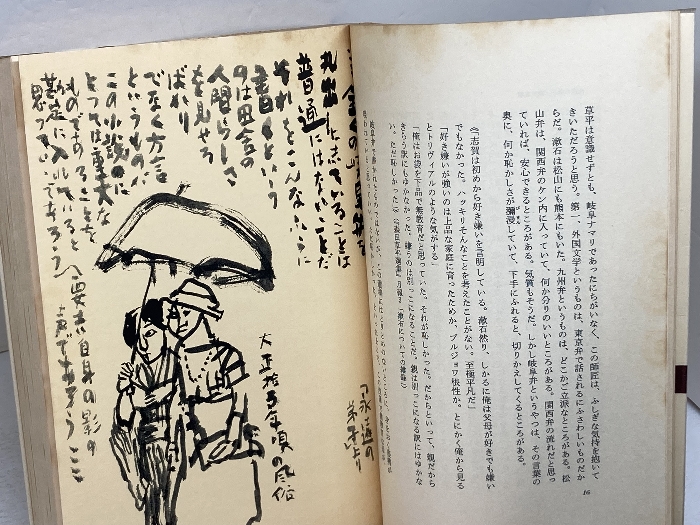 草平は意識せずとも、岐阜ナマリであったにちがいなく、この師匠は、ふしぎな気持を抱いて
きいただろうと思う。第一、外国文学というものは、東京弁で話されるにふさわしいものだか
らだ。漱石は松山にも熊本にもいた。九州弁というものは、どこかご立派なところがある。松
山弁は、関西弁のケン内に入っていて、何か分りのいいところがある。関西弁の流れだと思っ
ていれば、安心できるところがある。気質もそうだ。しかし岐阜弁というやつは、その言葉の
奥に、何か恥かしさが瀰浸していて、下手にふれると、切りかえしてくるところがある。
《「志賀は初から好き嫌いを言明している。漱石然り、しかるに俺は父母が好きでも嫌い
でもなかった。ハッキリそんなことを考えたことがない。至極平凡だ」
「好き嫌いが強いのは上品な家庭に育ったためか、ブルジョワ根性か。とにかく俺から見る
とトリヴィアルのような気がする」
「俺はお袋を下品で無教育だと思っていた。それが恥しかった。だからといって、親だから
きらう訳にもゆかなかった。嫌うのは別っこになることだ。親は別っこになる訳にはゆかな
い。ただ恥しかった」》
16
丸出しにしていることは
普通にはないことだ
それをこんなふうに
書くという
のは田舎の
人間らしさ
を見せる
ばかり
でなく方言
というものが
この小説に
とっては重大な
ものであることを
勘定に入れていると
思っていいであろう
大正拾三年頃の風俗
「永遠の
弟子より